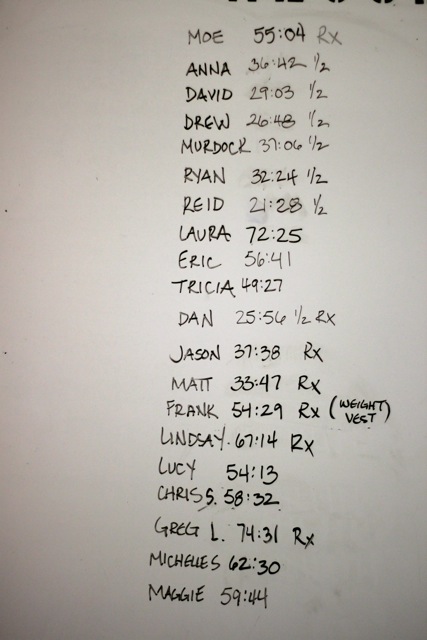 MOE 55:04 Rx
ANNA 36:42 1/2
DAVID 29:03 1/2
DREW 26:48 1/2
MURDOCK 37:06 1/2
RYAN 32:24 1/2
REID 21:28 1/2
LAURA 72:25
ERIC 56:41
TRICIA 49:27
DAN 25:56 1/2 Rx
JASON 37:38 Rx
MATT 33:47 Rx
FRANK 54:29 Rx (WEIGHT VEST)
LINDSAY. 67:14 Rx
LUCY 54:13
CHRIS S. 58:32
GREG L. 74:31 Rx
MICHELLES 62:30
MAGGIE 59:44